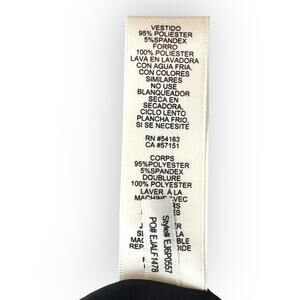 VESTIDO
95% POLIESTER
5%SPANDEX
FORRO
100% POLIESTER
LAVA EN LAVADORA
CON AGUA FRIA,
CON COLORES
SIMILARES
NO USE
BLANQUEADOR
SECA EN
SECADORA,
CICLO LENTO
PLANCHA FRIO.
SI SE NECESITE
RN #54163
CA #57151
CORPS
95%POLYESTER
5%SPANDEX
DOUBLURE
100% POLYESTER
LAVER À LA
Style# EJ6P0557
PO# EJALF1478